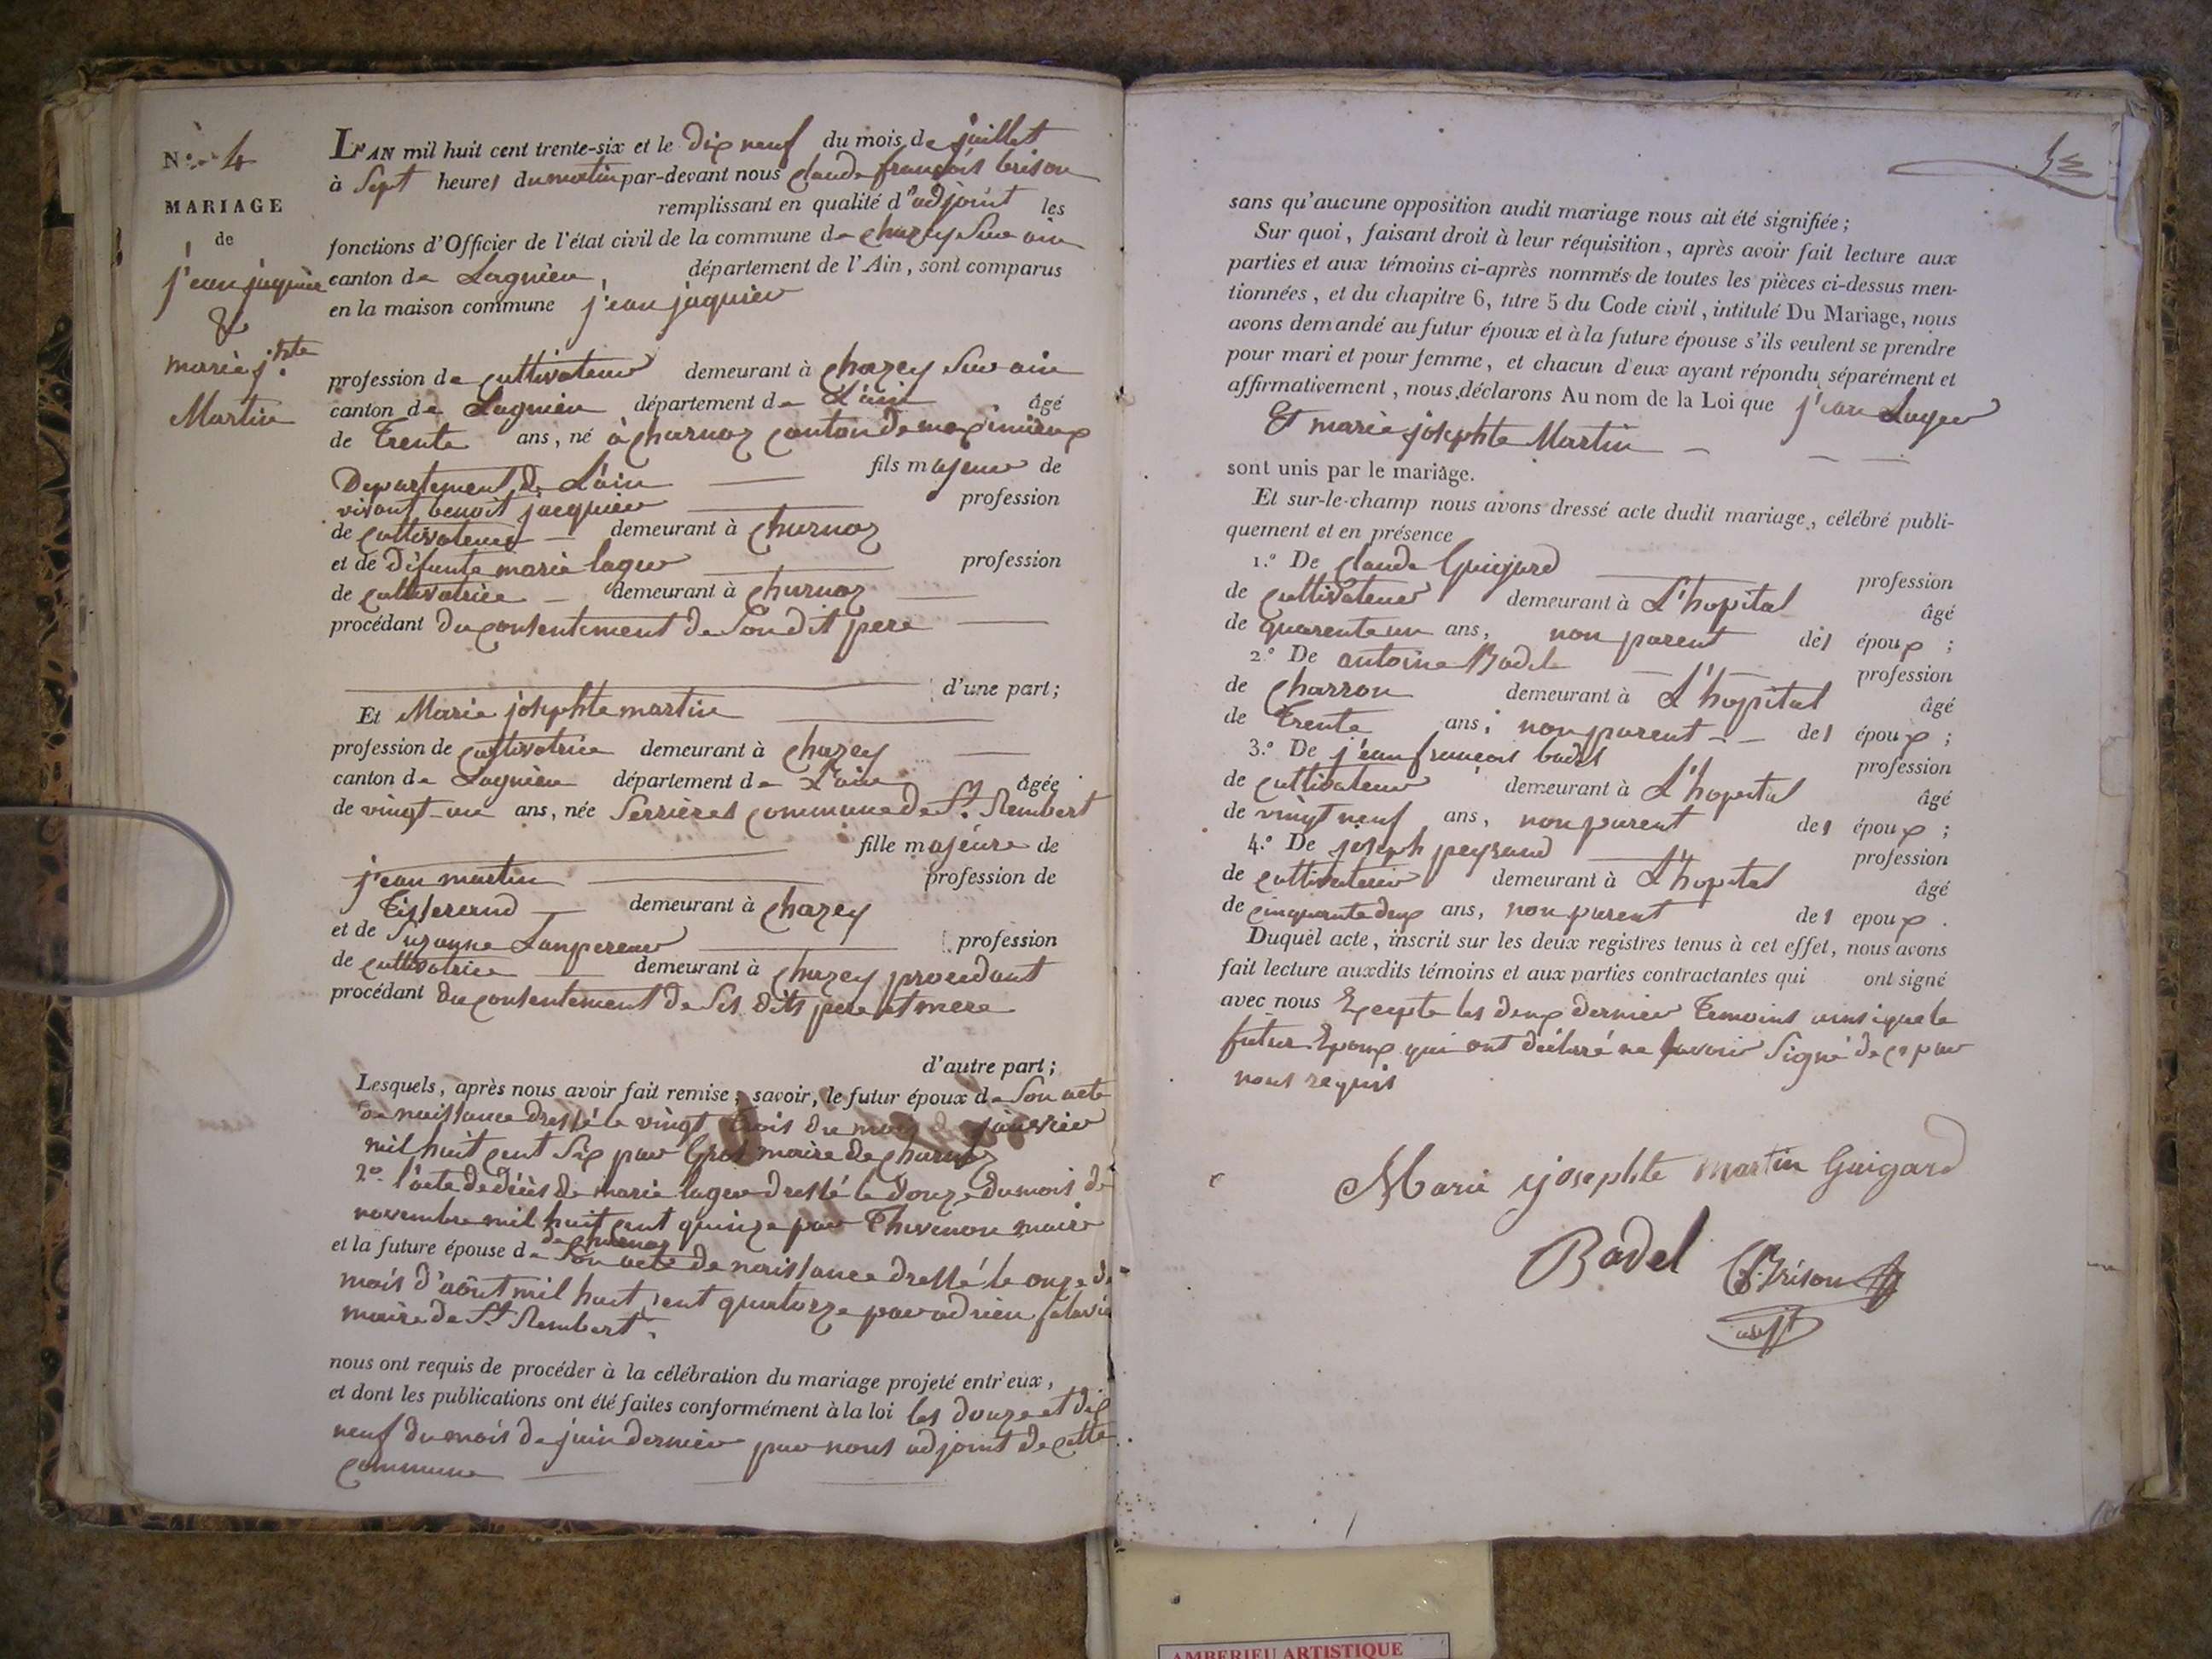 N.º 4
MARIAGE
de
jean jaquier
&
marie j.hte
Martin
L'AN mil huit cent trente-six et le dix neuf du mois de juillet
à Sept heures du matin par-devant nous Claude françois brison
remplissant en qualité d'adjoint les
fonctions d'Officier de l'état civil de la commune de chazey Sur ain
canton de Lagnieu, département de l'Ain, sont comparus
en la maison commune jean jaquier
profession de cultivateur demeurant à Chazey Sur ain
canton de Lagnieu département de L'ain âgé
de Trente ans, né à charnoz canton de meximieux
Departement de L'ain fils majeur de
vivant benoit jacquier profession
de cultivateur demeurant à Churnoz
et de défunte marie lager profession
de cultivatrice demeurant à churnoz
procédant du consentement de Son dit pere
d'une part;
Et Marie josephte martin
profession de cultivatrice demeurant à Chazey
canton de Lagnieu département de L'ain âgée
de vingt-un ans, née Serrières commune de St. Rembert
fille majeure de
jean martin profession de
Tisserand demeurant à Chazey
et de Suzanne Lempereur profession
de cultivatrice demeurant à Chazey procedant
procédant du consentement de Ses dits pere et mere
d'autre part;
Lesquels, après nous avoir fait remise, savoir, le futur époux de Son acte
de naissance dressé le vingt trois du mois janvier
mil huit cent Six par Gros maire de charnoz
2º l'acte de décès de marie lager dressé le douze du mois de
novembre mil huit cent quinze par Thevenon maire
de churnoz
et la future épouse de Son acte de naissance dressé le onze de
mois d'août mil huit cent quatorze par adrien
maire de St Rembert.
nous ont requis de procéder à la célébration du mariage projeté entr'eux,
et dont les publications ont été faites conformément à la loi les douze et dix
neuf du mois de juin dernier par nous adjoint de cette
commune
sans qu'aucune opposition audit mariage nous ait été signifiée;
Sur quoi, faisant droit à leur réquisition, après avoir fait lecture aux
parties et aux témoins ci-après nommés de toutes les pièces ci-dessus men-
tionnées, et du chapitre 6, titre 5 du Code civil, intitulé Du Mariage, nous
avons demandé au futur époux et à la future épouse s'ils veulent se prendre
pour mari et pour femme, et chacun d'eux ayant répondu séparément et
affirmativement, nous déclarons Au nom de la Loi que jean Lager
Et marie josephte Martin
sont unis par le mariage.
Et sur-le-champ nous avons dressé acte dudit mariage, célébré publi-
quement et en présence
1.º De Claude Guigard profession
de cultivateur demeurant à L'hopital âgé
de quarente un ans, non parent des époux;
2.º De antoine Badel profession
de Charron demeurant à L'hopital âgé
de Trente ans; non parent des époux;
3.º De jean françois badel profession
de cultivateur demeurant à L'hopital âgé
de vingt neuf ans, non parent des époux;
4.º De joseph peysand profession
de cultivateur demeurant à L'hopital âgé
de cinquante deux ans, non parent des epoux.
Duquel acte, inscrit sur les deux registres tenus à cet effet, nous avons
fait lecture auxdits témoins et aux parties contractantes qui ont signé
avec nous Excepte les deux dernier Temoins ainsi que le
futur Epoux qui ont déclaré ne savoir Signé de ce par
nous requis
Marie josephte martin Guigard
Badel C.f. Brison
adjt
AMBERIEU ARTISTIQUE